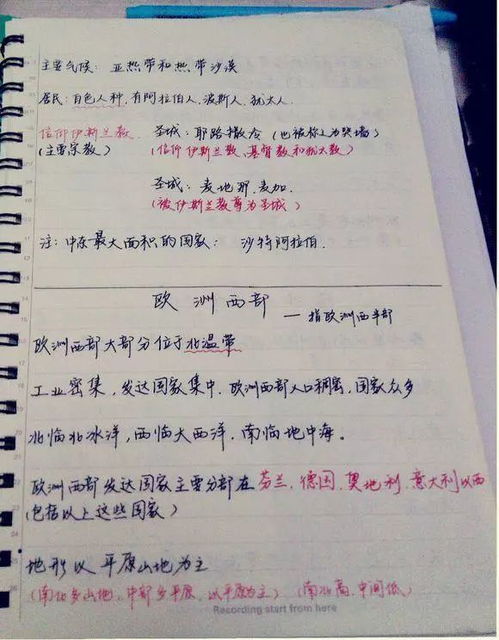 主要气候：亚热带和热带沙漠
居民：白色人种，有阿拉伯人，波斯人，犹太人．
信仰伊斯兰教 圣城：耶路撒冷（也被称之为哭墙）
（主要宗教） （信仰伊斯兰教，基督教和犹太教）
圣城：麦地那，麦加．
（被伊斯兰教尊为圣城）
注：中东最大面积的国家：沙特阿拉伯．
欧洲西部
—指欧洲西半部
欧洲西部大部分位于北温带
工业密集，发达国家集中，欧洲西部人口稠密，国家众多
北临北冰洋，西临大西洋，南临地中海。
欧洲西部发达国家主要分部在芬兰，德国，奥地利，意大利以西
（包括以上这些国家）
地形以平原山地为主
（南北多山地，中部多平原，以平原为主）（南北高，中间低）
Recording start from here